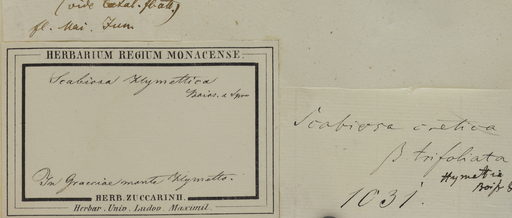 (vide Catal. 
fl. Mai. Jun.
HERBARIUM REGIUM MONACENSE.
Scabiosa Hymettica
Boiss. & Spru
In Graeciae monte Hymetto.
HERB. ZUCCARINII.
Herbar. Univ. Ludov. Maximil.
Scabiosa cretica
β trifoliata
Hymettia
Boiss &
1031.